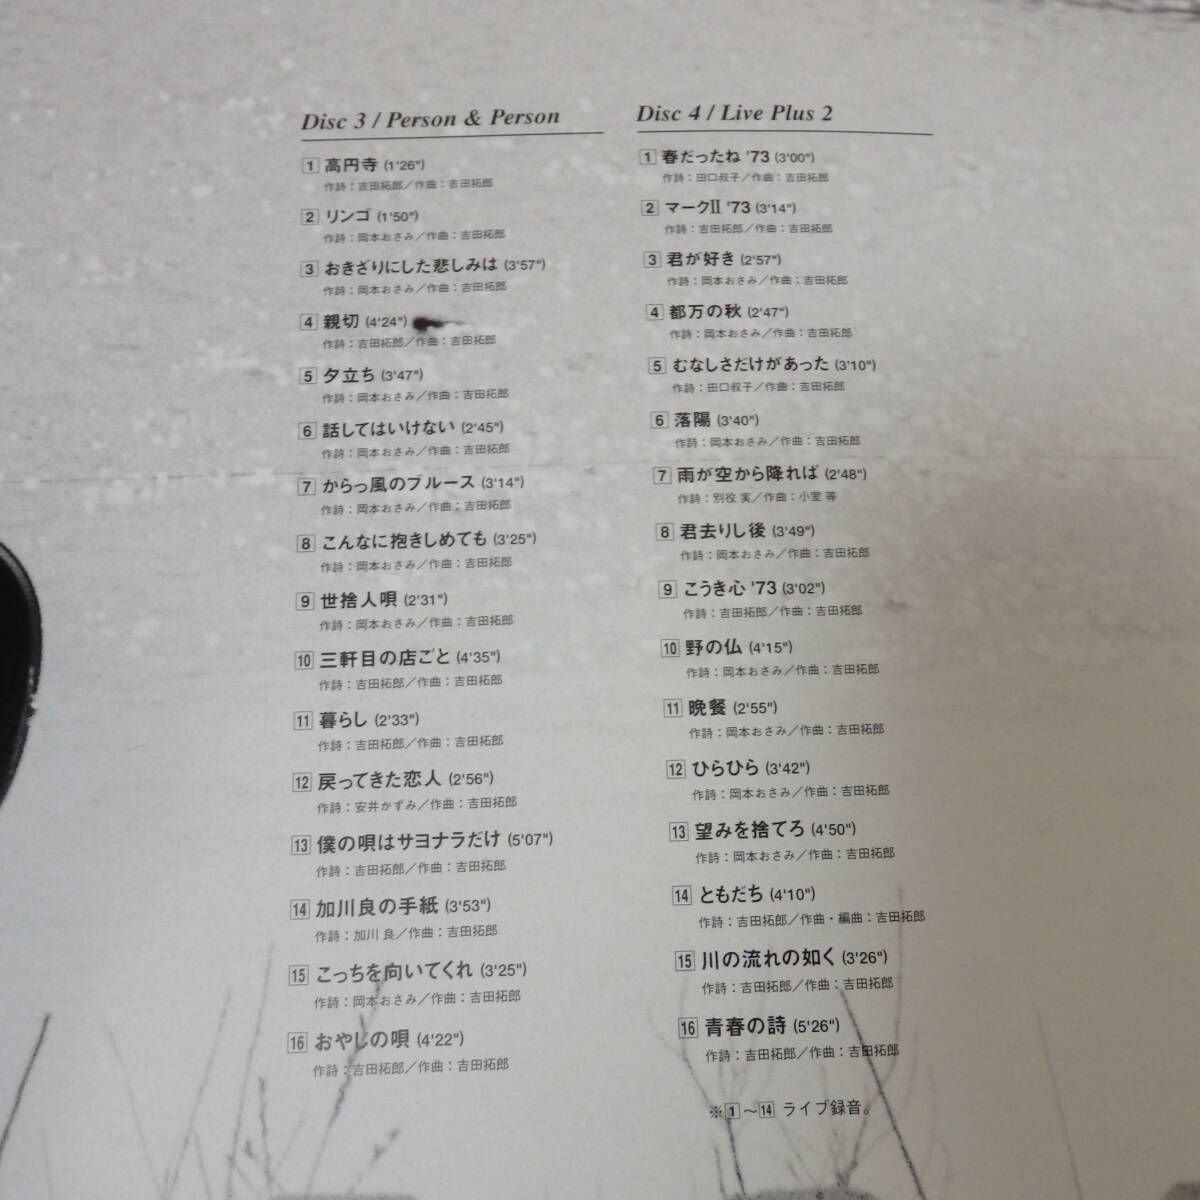 Disc 3 / Person & Person
1 高円寺 (1'26")
作詩：吉田拓郎／作曲：吉田拓郎
2 リンゴ (1'50")
作詩：岡本おさみ／作曲：吉田拓郎
3 おきざりにした悲しみは (3'57")
作詩：岡本おさみ／作曲：吉田拓郎
4 親切 (4'24")
作詩：吉田拓郎／作曲：吉田拓郎
5 夕立ち (3'47")
作詩：岡本おさみ／作曲：吉田拓郎
6 話してはいけない (2'45")
作詩：岡本おさみ／作曲：吉田拓郎
7 からっ風のブルース (3'14")
作詩：岡本おさみ／作曲：吉田拓郎
8 こんなに抱きしめても (3'25")
作詩：岡本おさみ／作曲：吉田拓郎
9 世捨人唄 (2'31")
作詩：岡本おさみ／作曲：吉田拓郎
10 三軒目の店ごと (4'35")
作詩：吉田拓郎／作曲：吉田拓郎
11 暮らし (2'33")
作詩：吉田拓郎／作曲：吉田拓郎
12 戻ってきた恋人 (2'56")
作詩：安井かずみ／作曲：吉田拓郎
13 僕の唄はサヨナラだけ (5'07")
作詩：吉田拓郎／作曲：吉田拓郎
14 加川良の手紙 (3'53")
作詩：加川 良／作曲：吉田拓郎
15 こっちを向いてくれ (3'25")
作詩：岡本おさみ／作曲：吉田拓郎
16 おやじの唄 (4'22")
作詩：吉田拓郎／作曲：吉田拓郎
Disc 4 / Live Plus 2
1 春だったね '73 (3'00")
作詩：田口叔子／作曲：吉田拓郎
2 マークⅡ '73 (3'14")
作詩：吉田拓郎／作曲：吉田拓郎
3 君が好き (2'57")
作詩：岡本おさみ／作曲：吉田拓郎
4 都万の秋 (2'47")
作詩：岡本おさみ／作曲：吉田拓郎
5 むなしさだけがあった (3'10")
作詩：田口叔子／作曲：吉田拓郎
6 落陽 (3'40")
作詩：岡本おさみ／作曲：吉田拓郎
7 雨が空から降れば (2'48")
作詩：別役 実／作曲：小室 等
8 君去りし後 (3'49")
作詩：岡本おさみ／作曲：吉田拓郎
9 こうき心 '73 (3'02")
作詩：吉田拓郎／作曲：吉田拓郎
10 野の仏 (4'15")
作詩：岡本おさみ／作曲：吉田拓郎
11 晩餐 (2'55")
作詩：岡本おさみ／作曲：吉田拓郎
12 ひらひら (3'42")
作詩：岡本おさみ／作曲：吉田拓郎
13 望みを捨てろ (4'50")
作詩：岡本おさみ／作曲：吉田拓郎
14 ともだち (4'10")
作詩：吉田拓郎／作曲・編曲：吉田拓郎
15 川の流れの如く (3'26")
作詩：吉田拓郎／作曲：吉田拓郎
16 青春の詩 (5'26")
作詩：吉田拓郎／作曲：吉田拓郎
※1～14 ライブ録音。